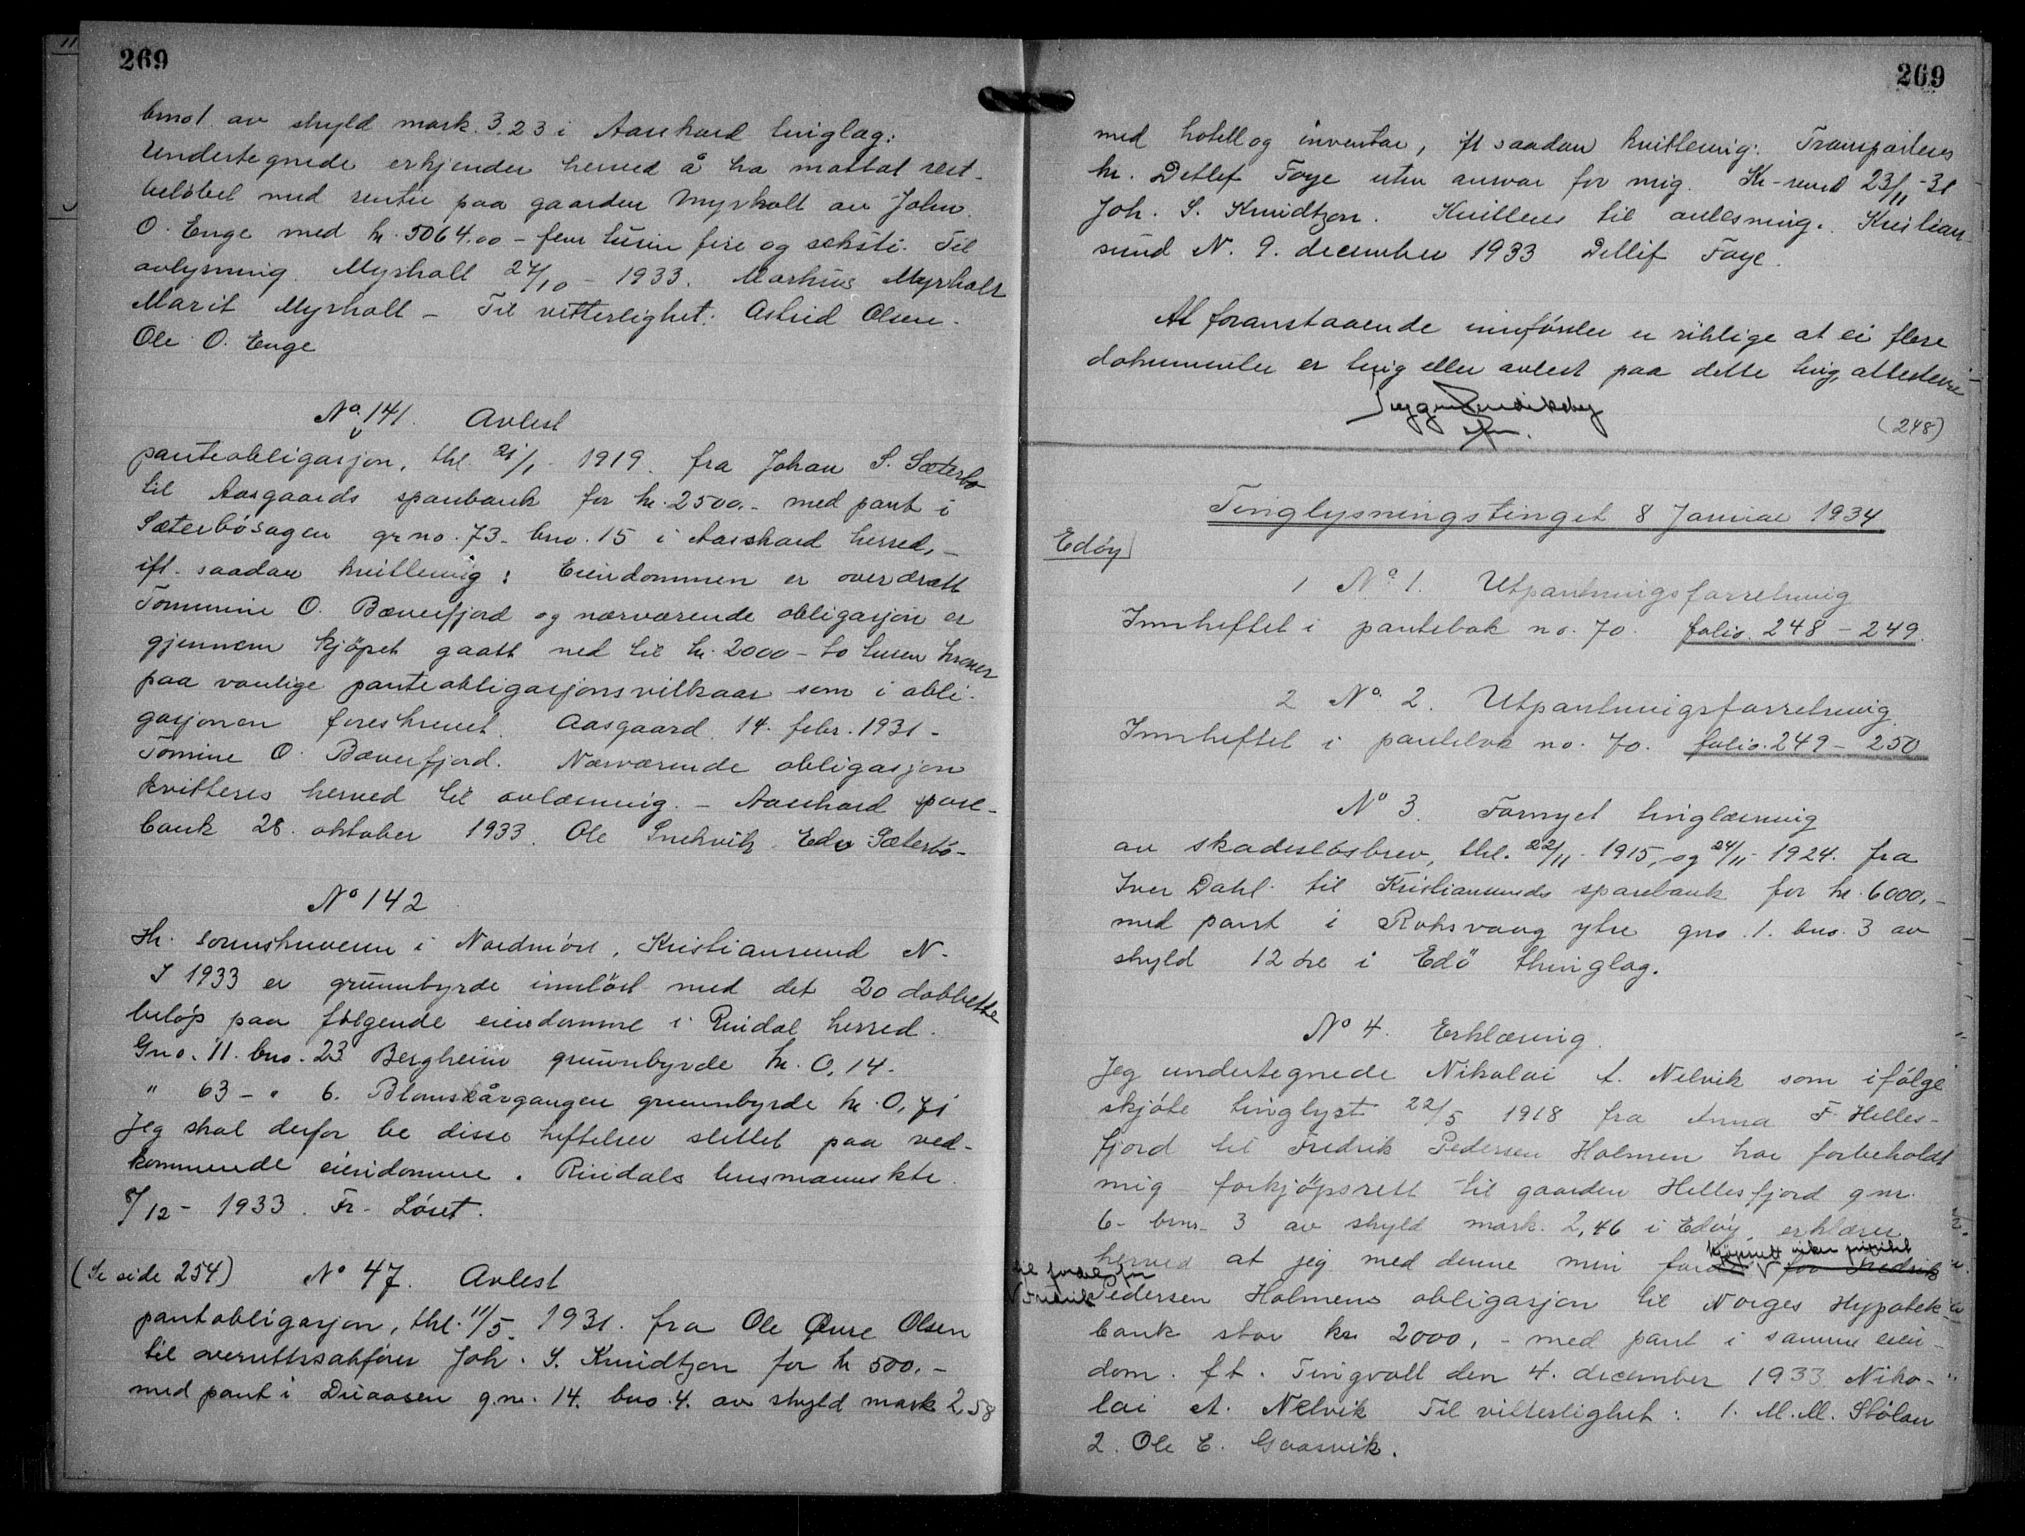 269
bno 1. av skyld mark. 3.23 i Aasskard tinglag:
Undertegnede erkjender herved å ha mottat rest-
beløbet med renter paa gaarden Myrholt av John
O. Enge med kr. 5064.00 - fem tusin fire og seksti. Til
avlysning. Myrholt 24/10 - 1933. Markus Myrholt
Marit Myrholt - Til vitterlighet: Astrid Olsen.
Ole O. Enge
No. 141. Avlest
panteobligasjon, thl. 21/1 - 1919. fra Johan S. Sæterbø
til Aasgaards sparebank for kr. 2500.- med pant i
Sæterbøsagen gr no. 73. bno. 15 i Aasskard herred, -
ifl. saadan kvittering: Eiendommen er overdratt
Tommine O. Bæverfjord og nærværende obligasjon er
gjennem kjøpet gaatt ned til kr. 2000 - to tusen kroner
paa vanlige panteobligasjonsvilkaar som i obli-
gasjonen foreskrevet. Aasgaard 14. febr. 1931 -
Tomine O Bæverfjord. Nærværende obligasjon
kvitteres herved til avlæsning. - Aasskard spare-
bank 28. oktober 1933. Ole Snekvik Edv Sæterbø-
No 142
Hr. sorenskriveren i Nordmøre, Kristiansund N.
I 1933 er grunnbyrde innløst med det 20 dobbelte
beløp paa følgende eiendomme i Rindal herred.
Gno. 11. bno. 23 Bergheim grunnbyrde kr. 0,14.
" 63 - " 6. Blomskårgangen grunnbyrde kr. 0,71
Jeg skal derfor be disse heftelser slettet paa ved-
kommende eiendomme. Rindals lensmannsktr.
8/12 - 1933. Fr. Løset.
(Se side 254) No 47. Avlest
pantobligasjon, thl. 11/5. 1931. fra Ole Øvre Olsen
til overrettssakfører Joh. S. Knudtzon for kr 500.-
med pant i Driaasen g.nr. 14. bno. 4. av skyld mark 2.58
269
med hotell og inventar, ifl saadan kvittering: Transporteres
hr. Detlef Faye uten ansvar for mig. Kr-sund 23/11 -31
Joh. S. Knudtzon. Kvitteres til avlesning. Kristian-
sund N. 9. december 1933 Detlef Faye.
At foranstaaende innførsler er riktige at ei flere
dokumenter er tinglyst eller avlest paa dette ting, attesteres-
(248)
Tinglysningstinget 8 Januar 1934
Edøy
1 No 1. Utpantningsforretning
Innheftet i pantebok no. 70. folio. 248 - 249.
2 No. 2. Utpantningsforretning.
Innheftet i pantebok no. 70. folio. 249 - 250
No 3. Fornyet tinglæsning
av skadesløsbrev, thl. 22/11 - 1915, og 24/11 - 1924. fra
Iver Dahl. til Kristiansunds sparebank for kr. 6000,-
med pant i Roksvaag ytre gno. 1. bno. 3 av
skyld 12 øre i Edö thinglag.
No 4. Erklæring.
Jeg undertegnede Nikolai A. Nelvik som ifølge
skjøte tinglyst 22/5 1918 fra Anna F. Helles-
fjord til Fredrik Pedersen Holmen har forbeholdt
mig forkjøpsrett til gaarden Hellesfjord gnr.
6 - bnr. 3 av skyld mark. 2,46 i Edøy, erklærer
kjøpsrett viker prioritet
herved at jeg med denne min for for Fredrik
til fordel for
Fredrik Pedersen Holmens obligasjon til Norges Hypotek-
bank stor kr. 2000,- med pant i samme eien-
dom. ft. Tingvoll den 4. december 1933. Niko-
lai A. Nelvik Til vitterlighet: 1. M. M. Stølan
2. Ole E. Gaasvik.